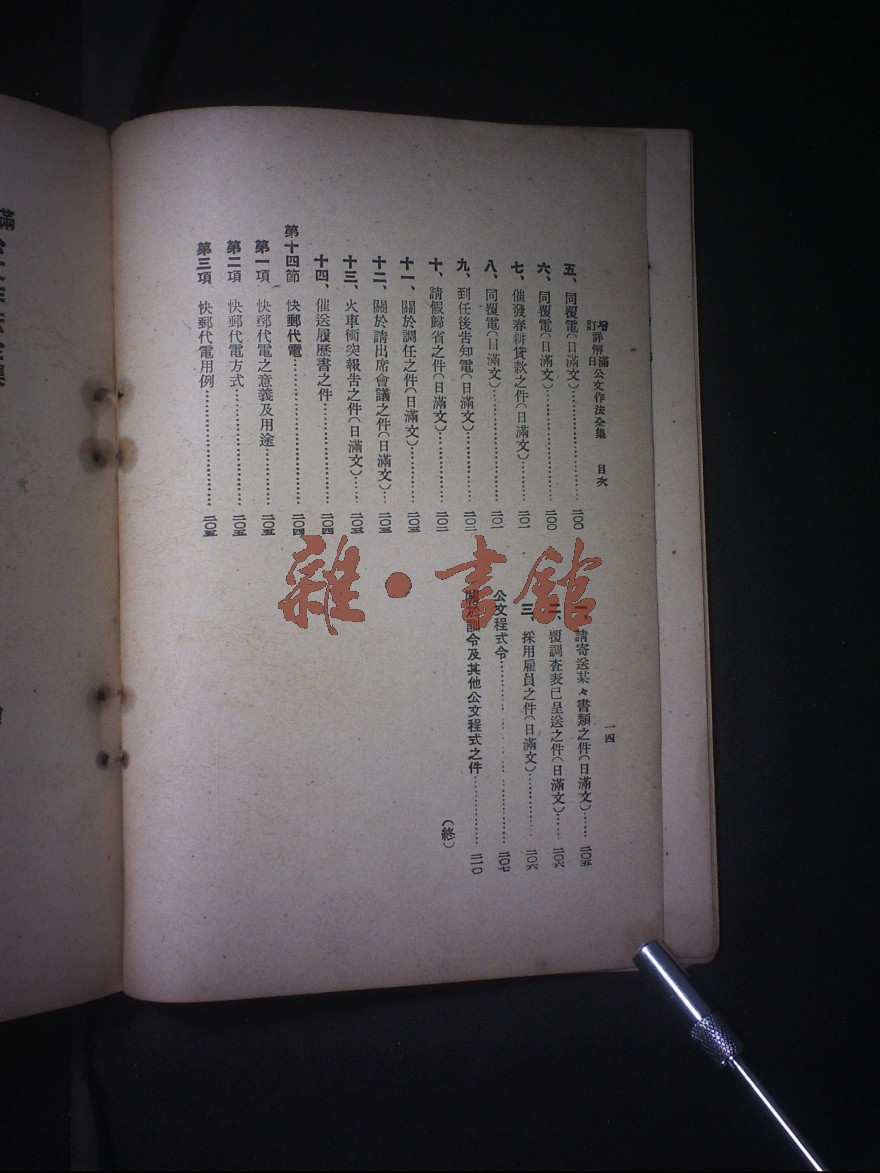 增訂詳解滿日公文作法全集 目次 一四
五、同覆電(日滿文)……………………二〇〇
六、同覆電(日滿文)……………………二〇〇
七、催發春耕貸款之件(日滿文)…………二〇一
八、同覆電(日滿文)……………………二〇一
九、到任後告知電(日滿文)………………二〇二
十、請假歸省之件(日滿文)………………二〇二
十一、關於調任之件(日滿文)……………二〇三
十二、關於請出席會議之件(日滿文)……二〇三
十三、火車衝突報告之件(日滿文)………二〇三
十四、催送履歷書之件……………………二〇四
第十四節 快郵代電………………………二〇四
第一項 快郵代電之意義及用途…………二〇五
第二項 快郵代電方式……………………二〇五
第三項 快郵代電用例……………………二〇五
一、請寄送某々書類之件(日滿文)………二〇五
二、覆調査表已呈送之件(日滿文)………二〇六
三、採用雇員之件(日滿文)………………二〇六
公文程式令…………………………………二〇七
關於訓令及其他公文程式之件……………二一〇
(終)
雜·書館